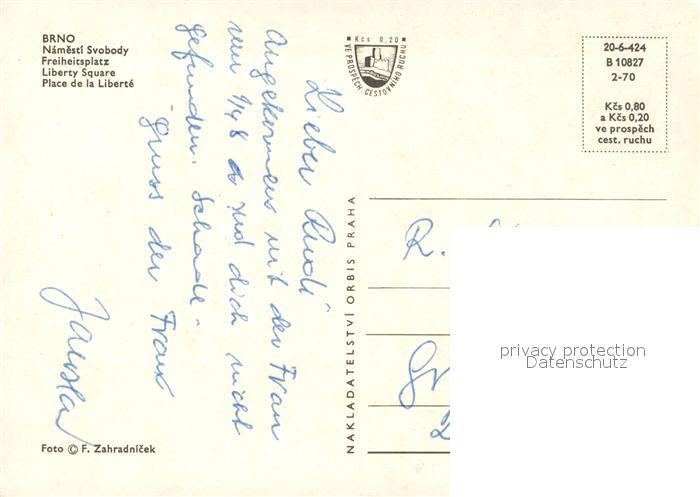 BRNO
Náměstí Svobody
Freiheitsplatz
Liberty Square
Place de la Liberté
Lieber Rudi
Angekommen mit der Frau
um 1/4 8 a und dich nicht
gefunden. Schade.
Gruss der Frau
Jaroslav
Foto © F. Zahradníček
Kčs 0,20
VE PROSPĚCH CESTOVNÍHO RUCHU
NAKLADATELSTVÍ ORBIS PRAHA
20-6-424
B 10827
2-70
Kčs 0,80
a Kčs 0,20
ve prospěch
cest. ruchu
R.
privacy protection
Datenschutz